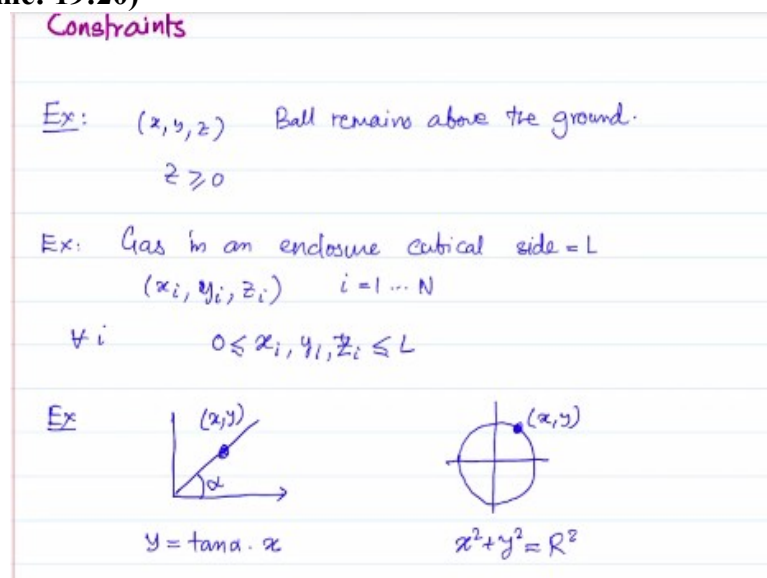 Constraints
Ex: (x, y, z) Ball remains above the ground.
z ⩾ 0
Ex: Gas in an enclosure cubical side = L
(xᵢ, yᵢ, zᵢ) i = 1 ... N
∀ i 0 ≤ xᵢ, yᵢ, zᵢ ≤ L
Ex
(x,y) (x,y)
α
y = tanα . x x² + y² = R²